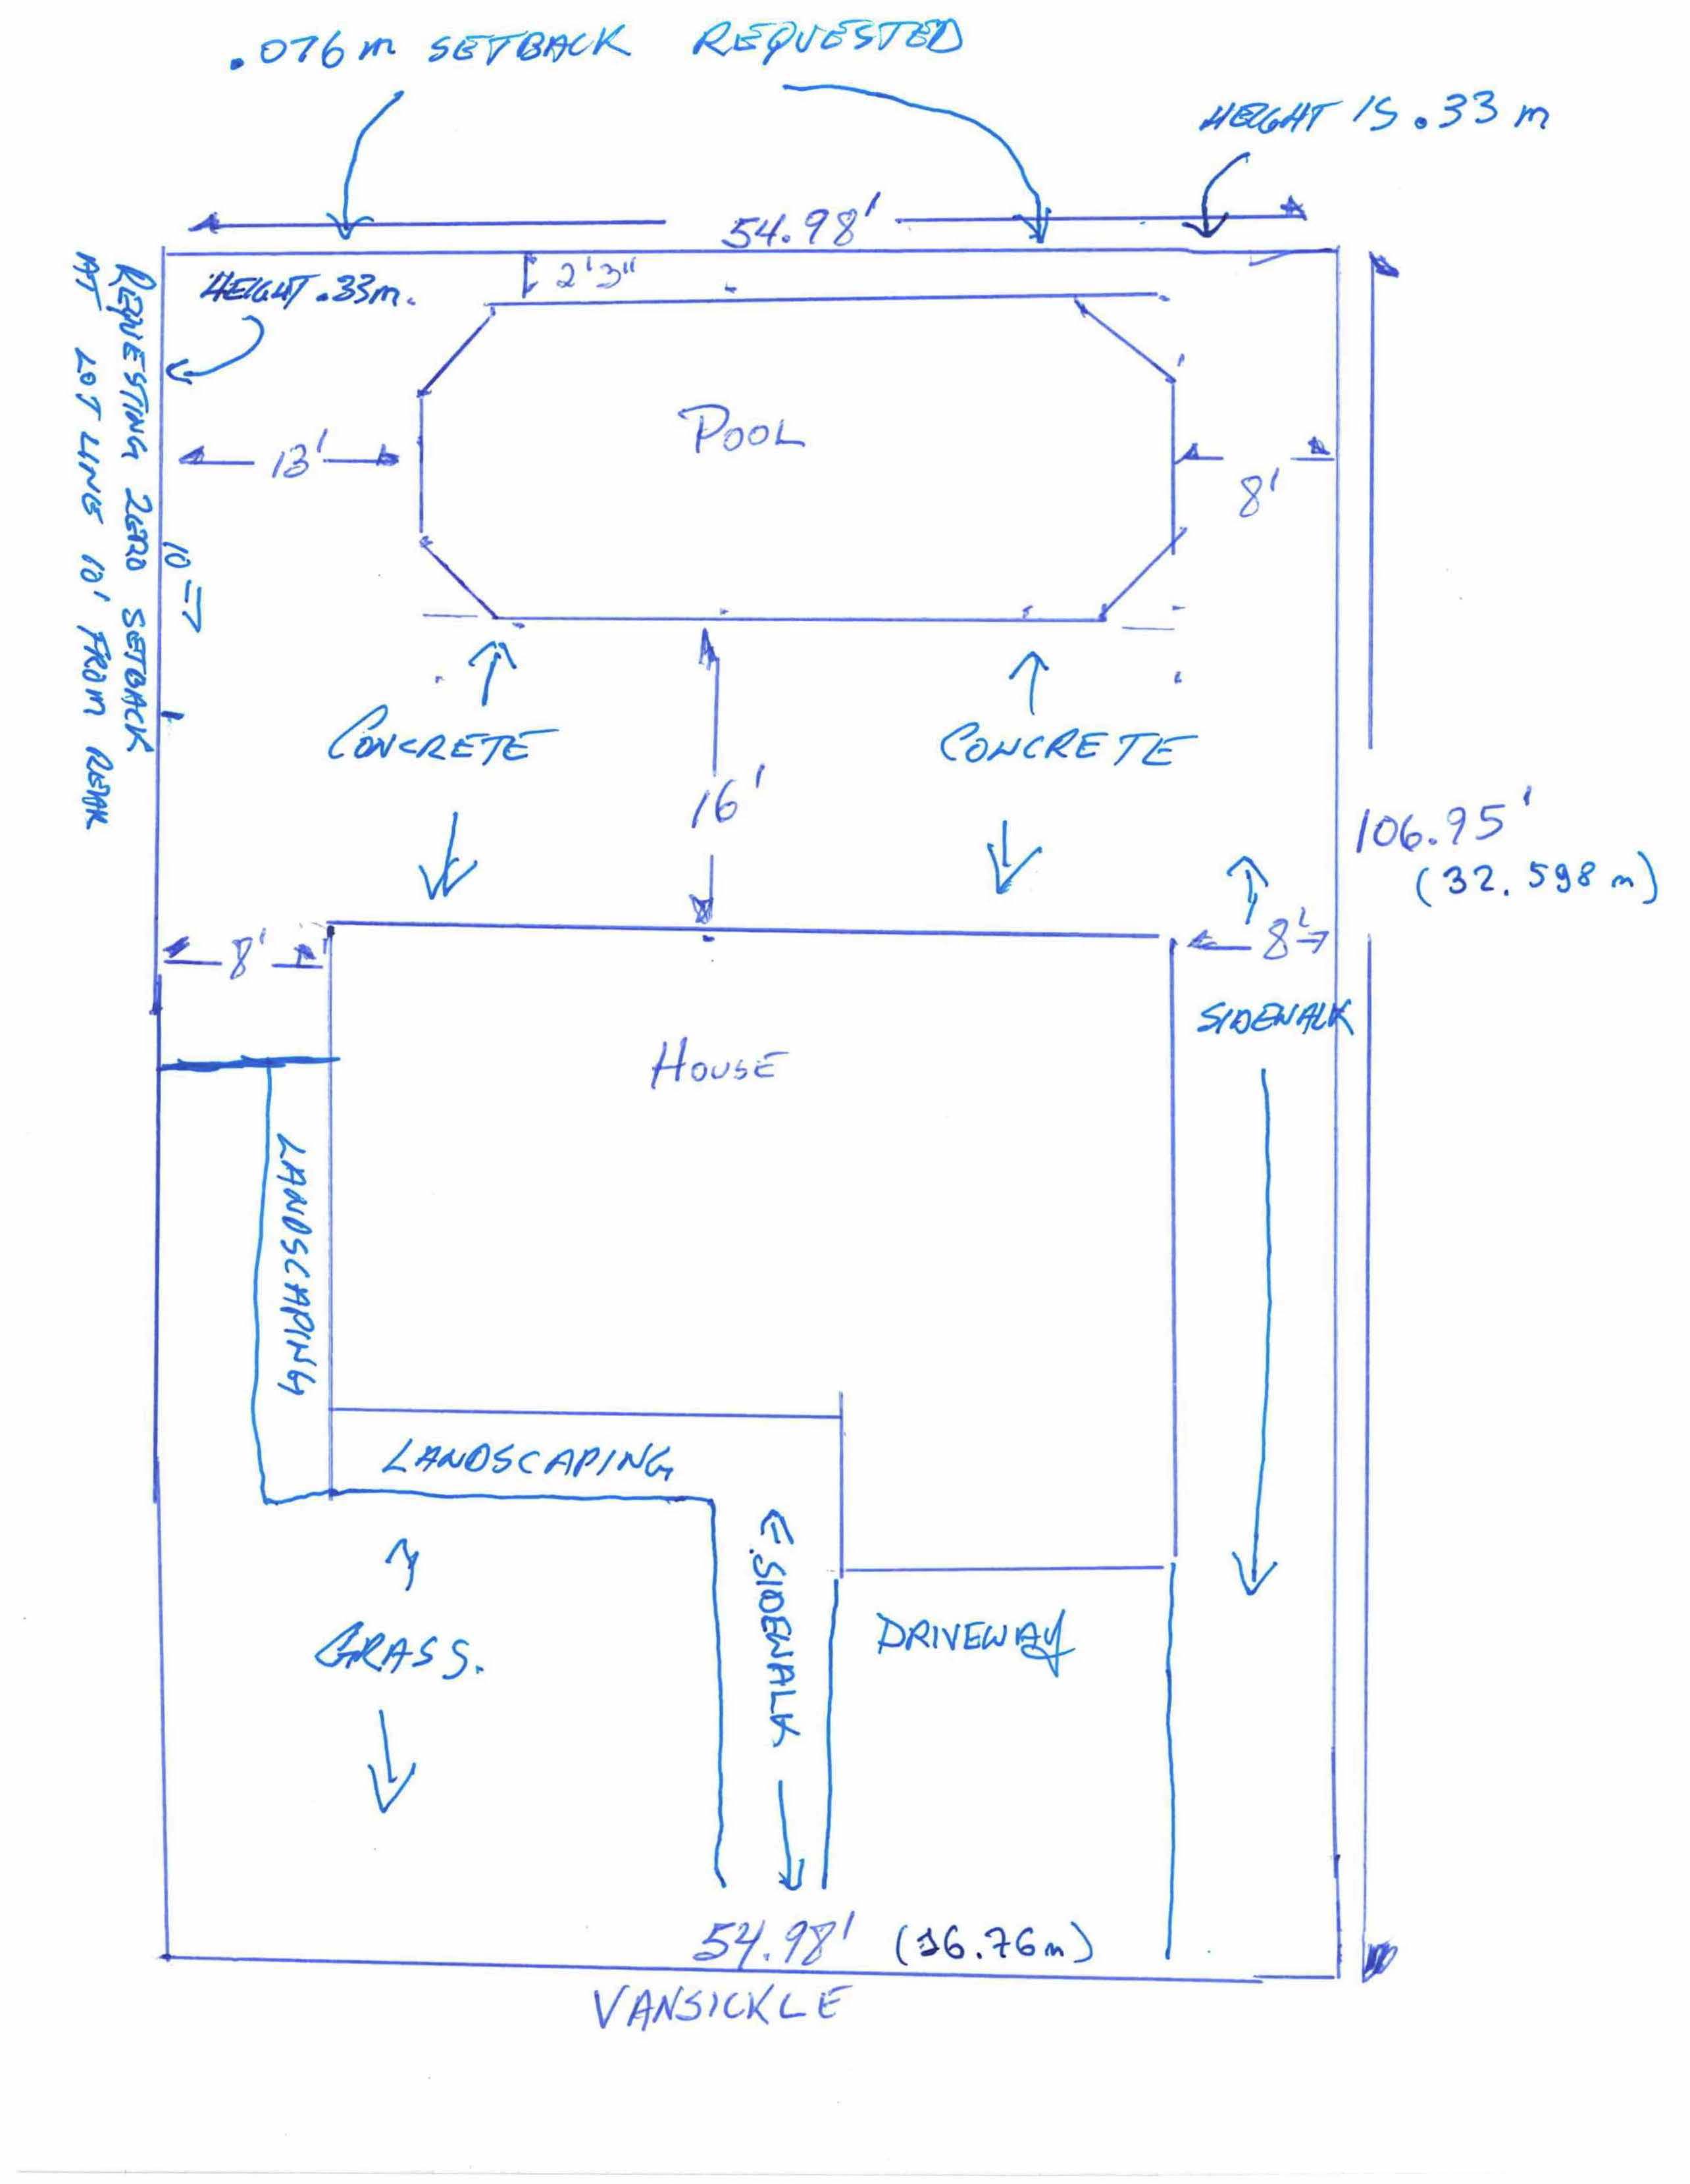 .076m SETBACK REQUESTED
HEIGHT IS .33m
54.98'
HEIGHT .33m.
2'3"
REQUESTING ZERO SETBACK
AT LOT LINE 10' FROM REAR
POOL
13'
8'
10'
CONCRETE
CONCRETE
16'
106.95'
(32.598m)
8'
8'
SIDEWALK
HOUSE
LANDSCAPING
LANDSCAPING
SIDEWALK
DRIVEWAY
GRASS.
54.98' (16.76m)
VANSICKLE